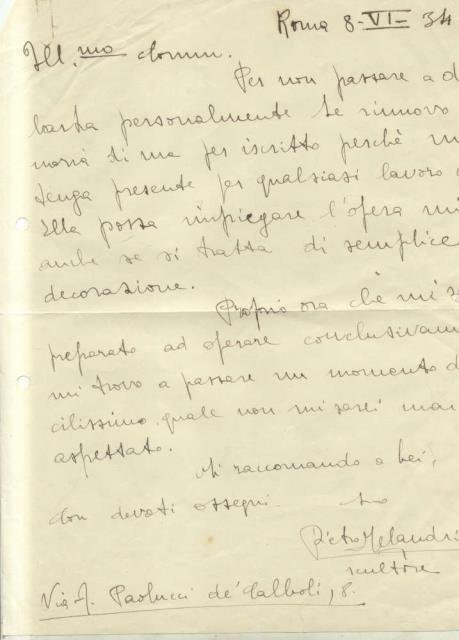 Roma 8-VI-34
Ill.mo Comm.
Per non passare a d
barba personalmente Le rinnovo
maria di ma per iscritto perchè m
tenga presente per qualsiasi lavoro
Ella possa impiegare l'opera mi
anche se si tratta di semplice
decorazione.
Proprio ora che mi s
preparato ad operare conclusivam
mi trovo a passare un momento d
cilissimo quale non mi sarei mai
aspettato.
Mi raccomando a Lei,
Con devoti ossequi. Suo
Pietro Melandri
scultore
Via A. Paolucci de' Calboli, 8.